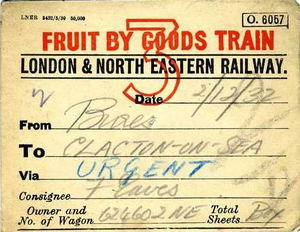 LNER 8432/5/30 50,000 O. 6057
FRUIT BY GOODS TRAIN
3
LONDON & NORTH EASTERN RAILWAY.
Date 2/12/32
From Bures
To CLACTON-ON-SEA
Via URGENT
Consignee Eaves
Owner and No. of Wagon 624602 NE Total Sheets Box